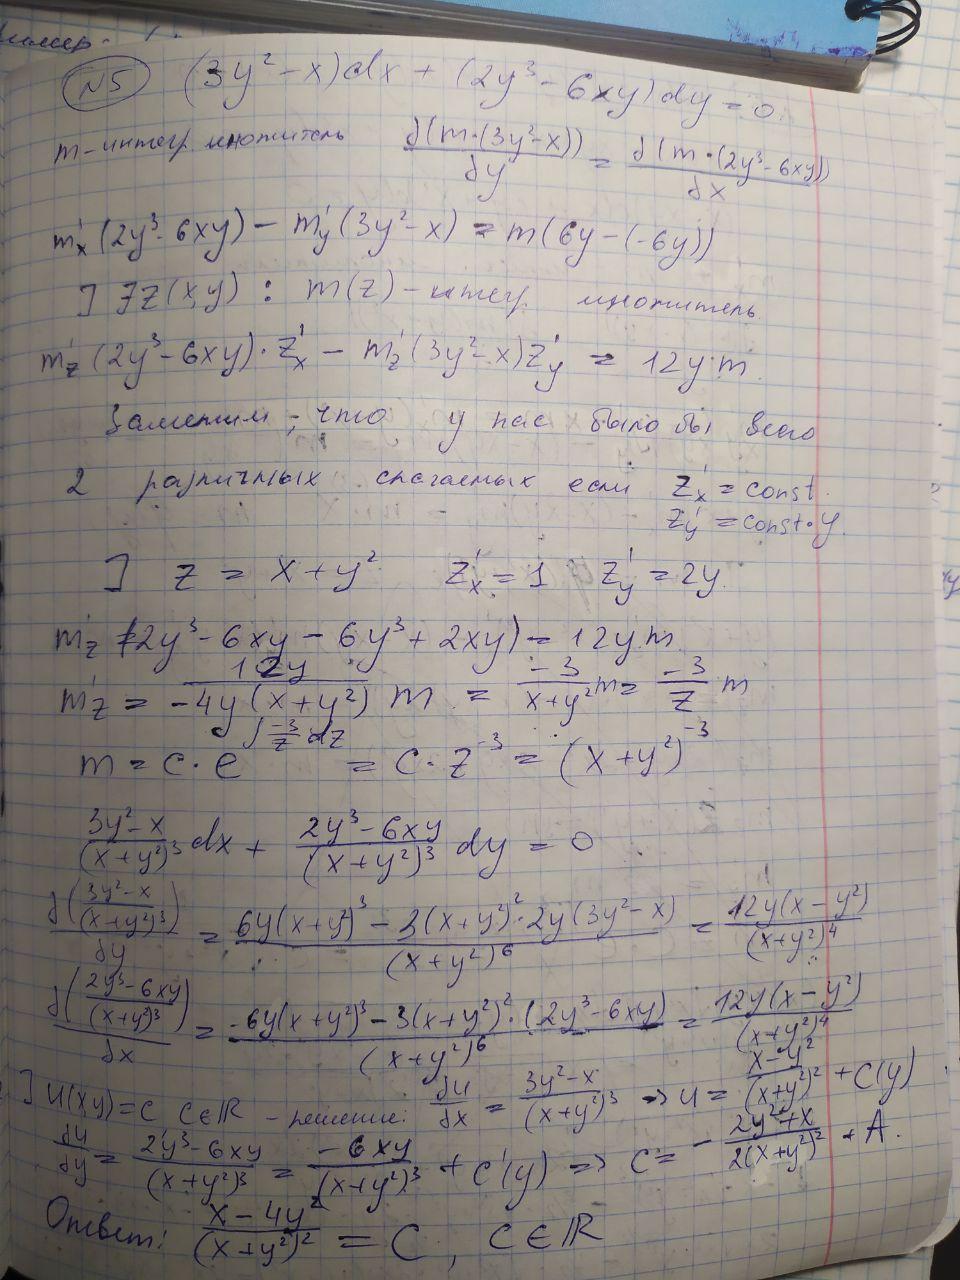 N5 (3y² - x)dx + (2y³ - 6xy)dy = 0.
m - интегр. множитель δ(m·(3y²-x))/δy = δ(m·(2y³-6xy))/δx
m'x(2y³-6xy) - m'y(3y²-x) = m(6y-(-6y))
] ∃z(x,y) : m(z) - интегр. множитель.
m'z(2y³-6xy)·z'x - m'z(3y²-x)z'y = 12y·m.
Заметим, что у нас было бы всего
2 различных слагаемых если z'x = const.
z'y = const·y.
] z = x+y² z'x = 1 z'y = 2y.
m'z(2y³-6xy-6y³+2xy) = 12y·m.
m'z = 12y/(-4y(x+y²)) m = -3/(x+y²) m = -3/z m
m = c·e^(∫ -3/z dz) = c·z⁻³ = (x+y²)⁻³
(3y²-x)/(x+y²)³ dx + (2y³-6xy)/(x+y²)³ dy = 0
δ((3y²-x)/(x+y²)³)/δy = (6y(x+y²)³-3(x+y²)²·2y(3y²-x))/(x+y²)⁶ = 12y(x-y²)/(x+y²)⁴
δ((2y³-6xy)/(x+y²)³)/δx = (-6y(x+y²)³-3(x+y²)²·(2y³-6xy))/(x+y²)⁶ = 12y(x-y²)/(x+y²)⁴
] U(xy)=C C∈ℝ - решение: δu/δx = (3y²-x)/(x+y²)³ => u = (x-y²)/(x+y²)² + C(y)
δu/δy = (2y³-6xy)/(x+y²)³ = -6xy/(x+y²)³ + C'(y) => C = -(2y²+x)/(2(x+y²)²) + A.
Ответ: (x-4y²)/(x+y²)² = C, C∈ℝ